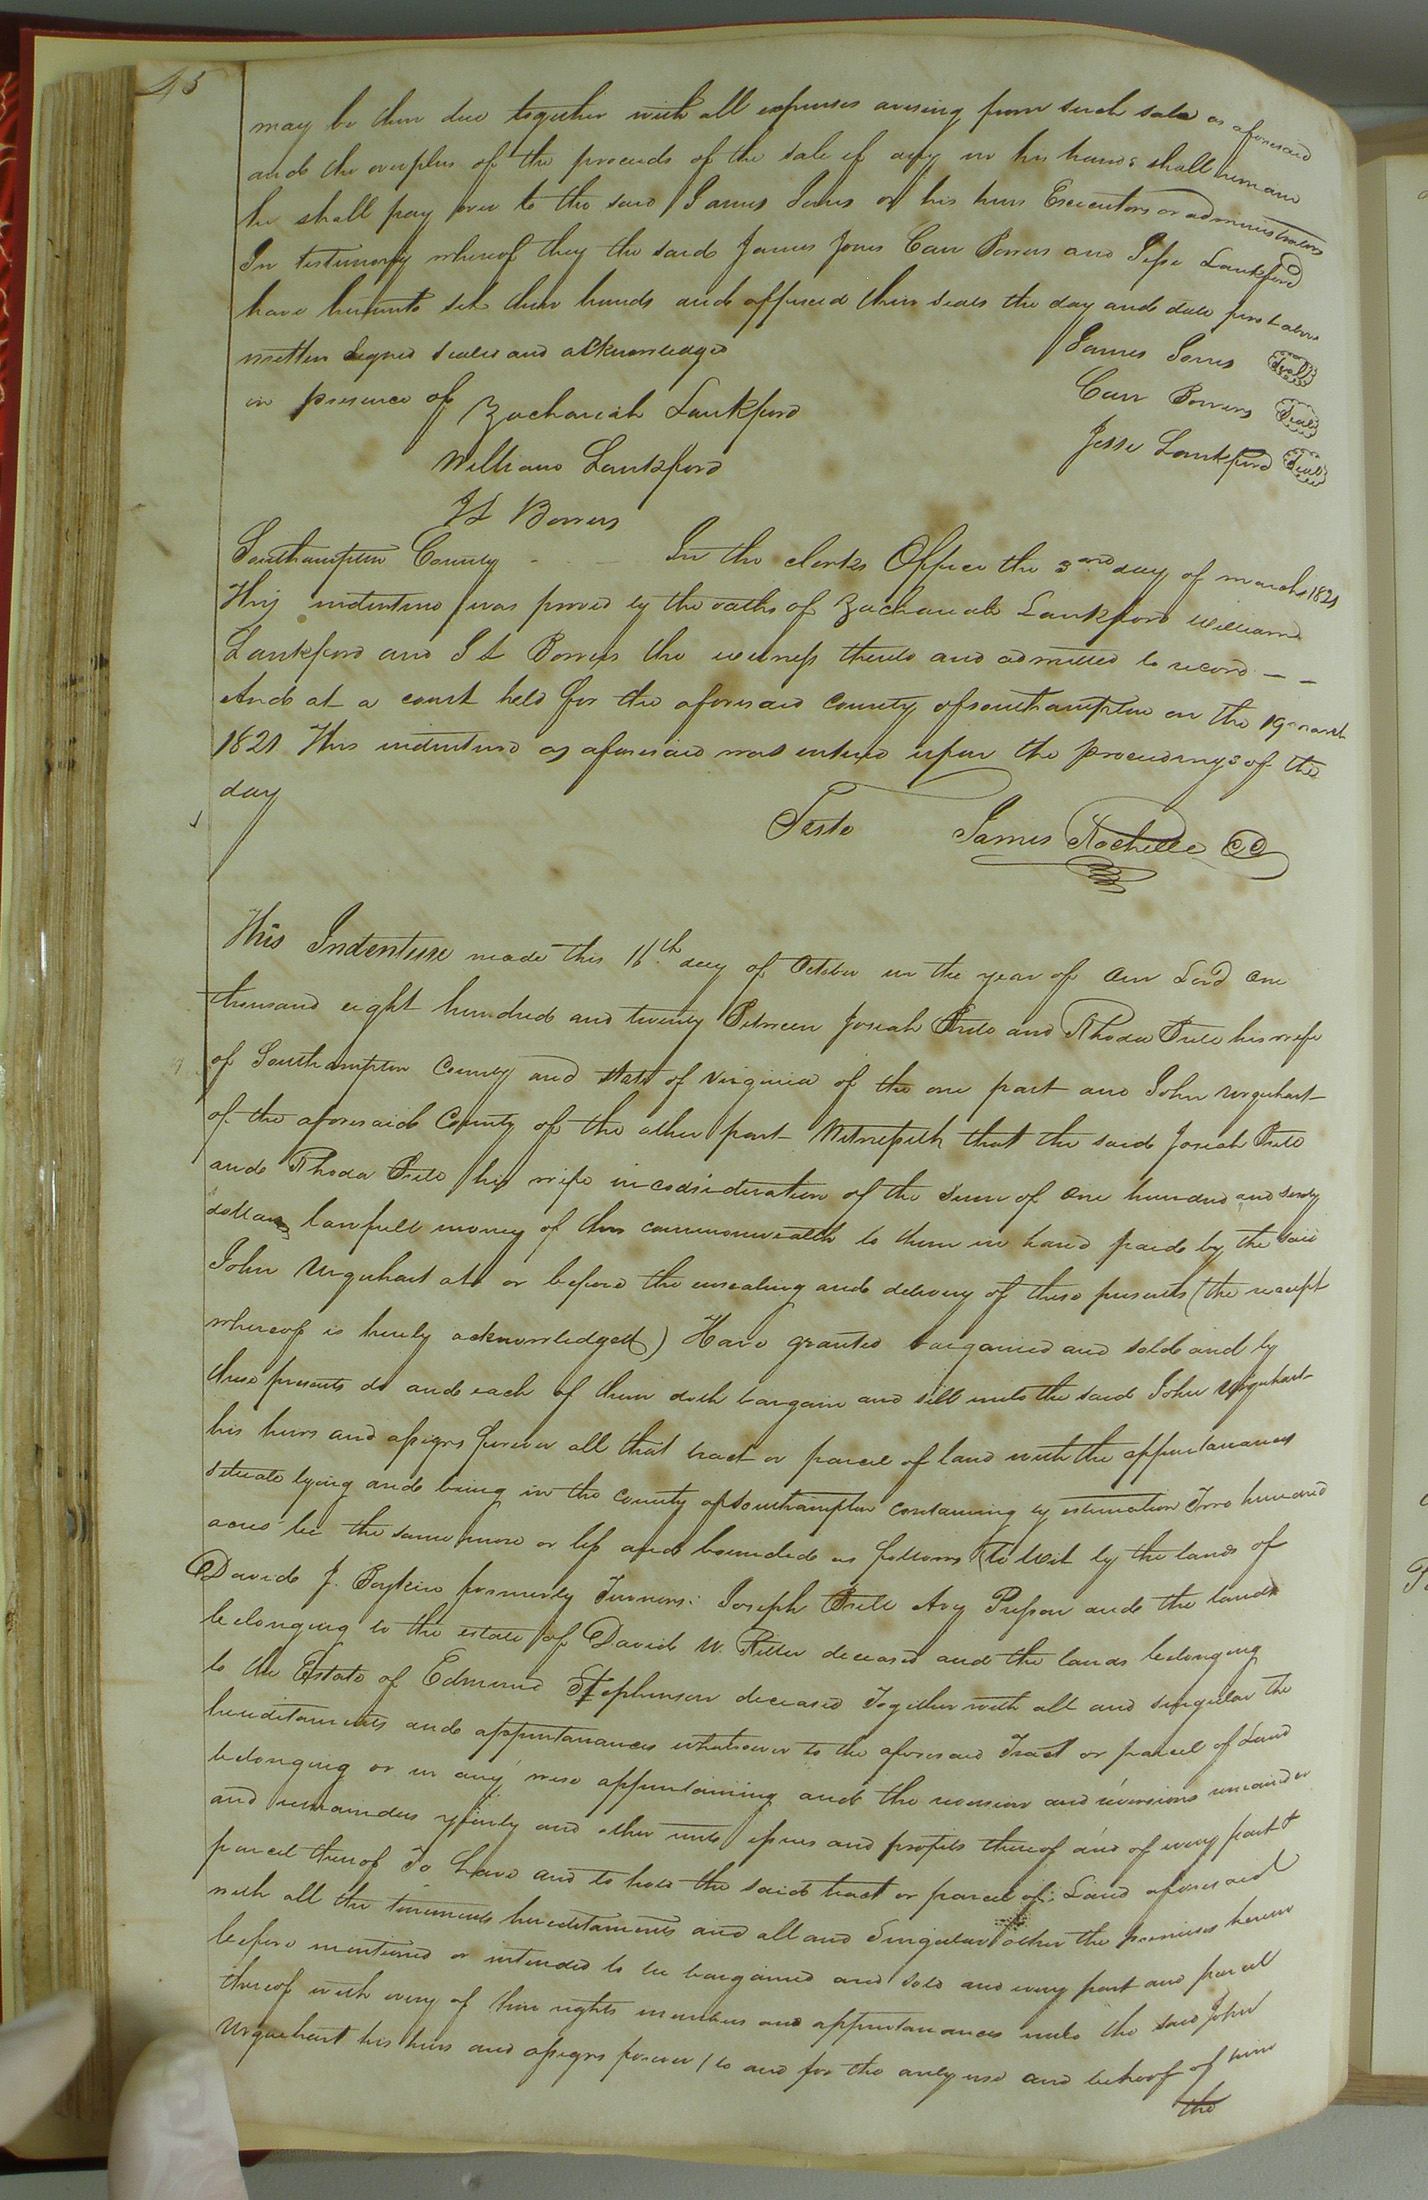 45
may be then due together with all expenses arising from such sale as aforesaid
and the overplus of the proceeds of the sale if any in his hands shall remain
he shall pay over to the said James Jones or his heirs Executors or administrators
In testimony whereof they the said James Jones Carr Bowers and Jesse Lankford
have hereunto set their hands and affixed their seals the day and date first above
written Signed sealed and acknowledged
in presence of
James Jones Seal
Carr Bowers Seal
Jesse Lankford Seal
Zachariah Lankford
William Lankford
Bowers
Southampton County - - In the clerks Office the 3rd day of march 1821
This indenture was proved by the oaths of Zachariah Lankford William
Lankford and Bowers the witness thereto and admitted to record - -
And at a court held for the aforesaid County of Southampton on the 19 march
1821 This indenture as aforesaid was entered upon the proceedings of the
day
Teste James Rochelle CC
This Indenture made this 16th day of October in the year of Our Lord One
thousand eight hundred and twenty Between Josiah and Rhoda his wife
of Southampton County and State of Virginia of the one part and John Urquhart
of the aforesaid County of the other part Witnesseth that the said Josiah
and Rhoda his wife in consideration of the sum of One hundred and
dollars lawfull money of this commonwealth to them in hand paid by the said
John Urquhart at or before the ensealing and delivery of these presents (the receipt
whereof is hereby acknowledged) Have granted bargained and sold and by
these presents do and each of them doth bargain and sell unto the said John Urquhart
his heirs and assigns forever all that tract or parcel of land with the appurtenances
situate lying and being in the County of Southampton containing by estimation Two hundred
acres be the same more or less and bounded as follows (to wit by the lands of
David J. Boykin formerly Turners: Joseph and the lands
belonging to the estate of David W. deceased and the lands belonging
to the Estate of Edmund Stephenson deceased Together with all and singular the
hereditaments and appurtenances whatsoever to the aforesaid Tract or parcel of Land
belonging or in any wise appurtaining and the reversion and reversions remainder
and remainders yearly and other rents issues and profits thereof and of every part &
parcel thereof To have and to hold the said tract or parcel of Land aforesaid
with all the tenements hereditaments and all and Singular other the premises herein
before mentioned or intended to be bargained and sold and every part and parcel
thereof with every of their rights members and appurtanances unto the said John
Urquehart his heirs and assigns forever / to and for the only use and behoof of him
the